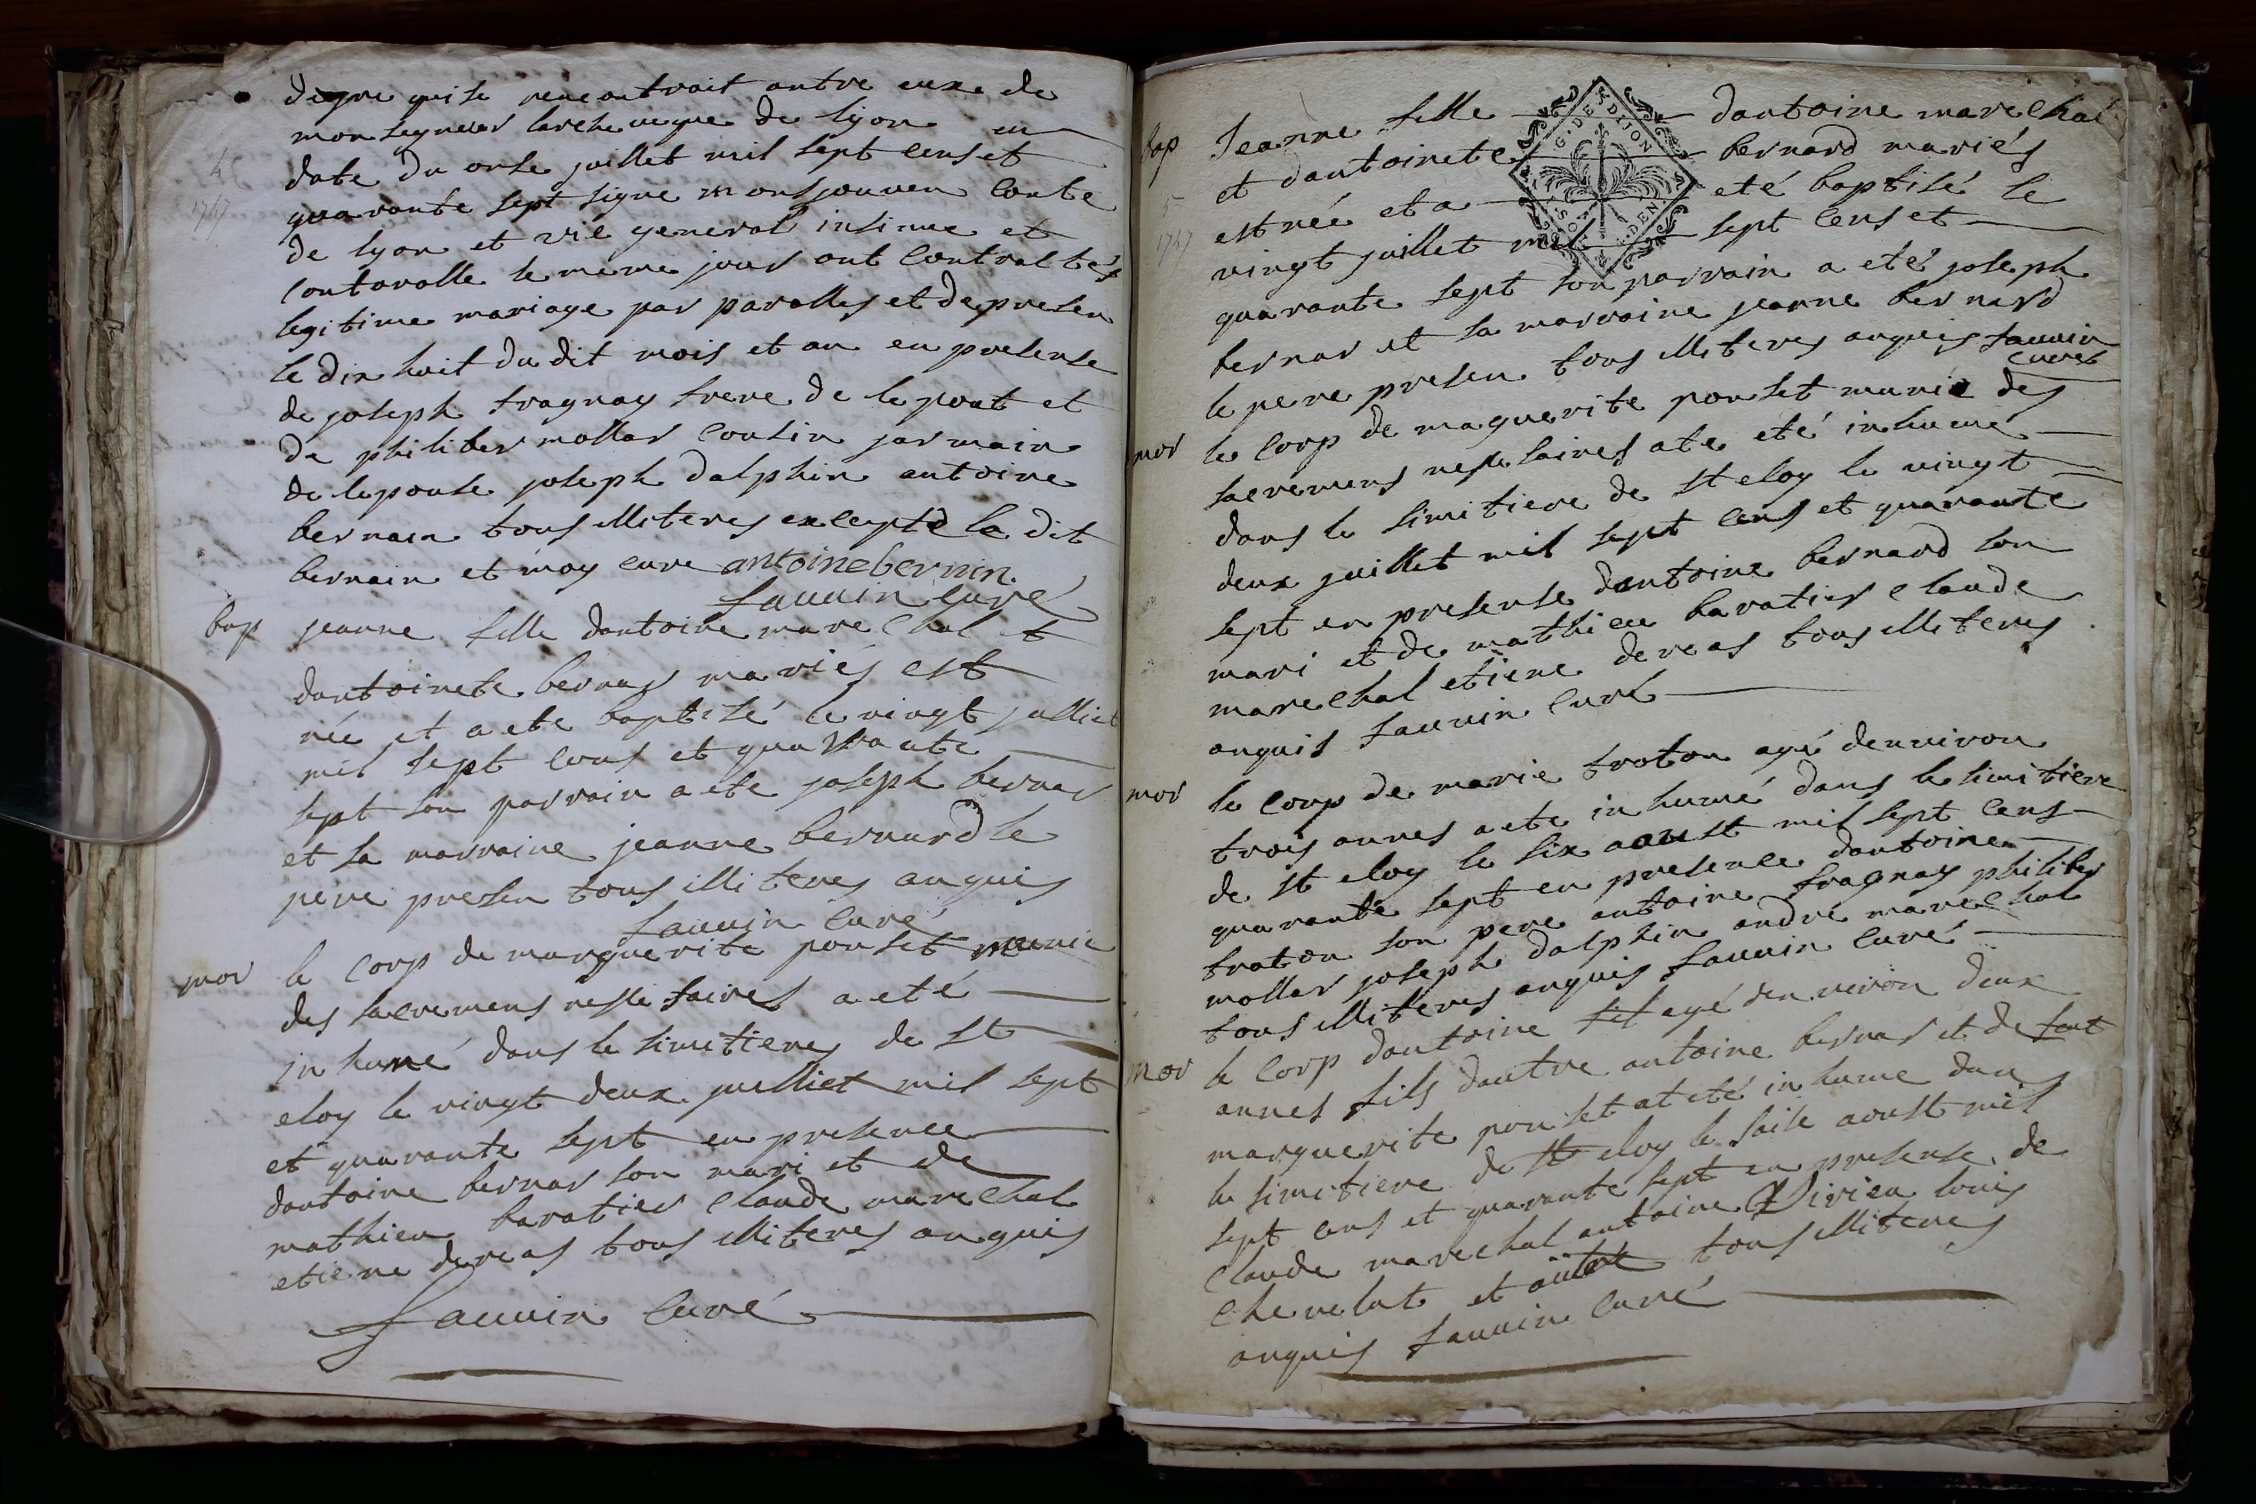 degre quise rencontrait antre euxe de
mon segneur larcheveque de lyon en
date du onse juillet mil sept cens et
quarante sept signe monsjouven conte
de lyon et vié general insinue et
contorolle le meme jour ont contracté
legitime mariage par parolles et de presen
le dix huit du dit mois et an en presense
de joseph fragnay frere de lepout et
de philiber mollar cousin jarmain
de lepouse joseph dalphin antoine
bernain tous illiteres excepté le dit
bernain et moy curé antoine bernin
sauvin curé
bap jeanne fille dantoine marechal et
dantoinete bernar mariés est
née et a ete baptisé le vingt julliet
mil sept cens et quarante
sept son parrain a ete joseph bernar
et sa marraine jeanne bernard le
pere presen tous illiteres anquis
sauvin curé
mor le corp de marguerite ponset munie
des sacremens nesse saires a eté
in humé dans le simetieres de st
eloy le vingt deux julliet mil sept
et quarante sept en presence
dantoine bernar son mari et de
mathieu baratier claude marechal
etiene dereas tous illiteres anquis
sauvin curé
4
1747
bap Jeanne fille dantoine marechal
et dantoinete bernard mariés
est née et a eté baptisé le
vingt juillet mil sept cens et
quarante sept son parrain a eté joseph
bernar et sa marraine jeanne bernard
le pere presen tous illiteres anquis sauvin
curé
mor le corp de maguerite ponset munie des
sacremens nesse saires a ete eté inhumé
dans le simitiere de st eloy le vingt
deux juillet mil sept cens et quarante
sept en presense dantoine bernard son
mari et de mathieu baratier claude
marechal etiene dereas tous illiteres
anquis sauvin curé
mor le corp de marie traton agé denviron
trois annes a ete in humé dans le simitiere
de st eloy le six aoust mil sept cens
quarante sept en presence dantoine
traton son pere antoine fragnay philiber
mollar joseph dalphin andré marechal
tous illiteres anquis sauvin curé
mor le corp dantoine fil agé denviron deux
annes fils dautre antoine bernar et de feut
marguerite ponset at eté in hume dans
le simitiere de st eloy le saise aoust mil
sept cens et quarante sept en presense de
claude marechal antoine Virieu louis
chevelut et autre tous illiteres
anquis sauvin curé
5
1747
G. DE DIJON
SOLS DEN